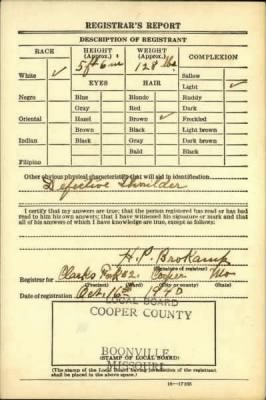 REGISTRAR'S REPORT
DESCRIPTION OF REGISTRANT
RACE HEIGHT (Approx.) WEIGHT (Approx.) COMPLEXION
5 ft 6 in 128 lbs.
White ✓ EYES HAIR Sallow
Light ✓
Negro Blue Blonde Ruddy
Gray Red Dark
Oriental Hazel Brown ✓ Freckled
Brown Black Light brown
Indian Black Gray Dark brown
Bald Black
Filipino
Other obvious physical characteristics that will aid in identification
Defective Shoulder
I certify that my answers are true; that the person registered has read or has had
read to him his own answers; that I have witnessed his signature or mark and that
all of his answers of which I have knowledge are true, except as follows:
H. P. Brokamp
(Signature of registrar)
Registrar for Clarks Fork 2. Cooper Mo
(Precinct) (City or county) (State)
Date of registration Oct. 16 1940
LOCAL BOARD
COOPER COUNTY
BOONVILLE
(STAMP OF LOCAL BOARD)
MISSOURI
(The stamp of the Local Board having jurisdiction of the registrant
shall be placed in the above space.)